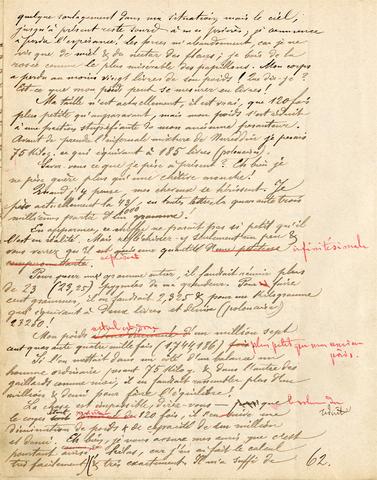 quelque soulagement dans ma situation, mais le ciel,
jusqu'à présent reste sourd à mes prières; je commence
à perdre l'espérance! les forces m'abandonnent, car je ne
vis que de miel & du nectar des fleurs; je bois de la
rosée comme le plus misérable des papillons. Mon corps
a perdu au moins vingt livres de son poids! Que dis-je?
Est-ce que mon poids peut se mesurer en livres!
Ma taille n'est actuellement, il est vrai, que 120 fois
plus petite qu'auparavant, mais mon poids s'est réduit
à une portion stupéfiante de mon ancienne pesanteur.
Avant de prendre l'infernal elixir de Nureddin je pesais
75 Kilog., ce qui équivaut à 185 livres (polonaises)
Savez vous ce que je pèse à présent? Eh bien je
ne pèse guère plus qu'une chétive mouche!
Quand j'y pense, mes cheveux se hérissent. Je
pèse actuellement la 43/1000 en toutes lettres la quarante trois
millièmes partie d'un gramme!
En apparence, ce chiffre ne paraît pas si petit qu'il
l'est en réalité. Mais réfléchissez-y seulement un peu &
vous verrez que c'est une quantité infinitésimale
Pour peser un gramme entier, il faudrait réunir plus
de 23 (23,25) Pygmées de ma grandeur. Pour faire
cent grammes, il en faudrait 2,325 & pour un kilogramme
qui équivaut à deux livres et demie (polonaises)
23250!
Mon poids actuel est donc d'un million sept
cent quarante quatre mille fois (1744186) plus petit que mon ancien
poids.
Si l'on mettait dans un côté d'un balance un
homme ordinaire pesant 75 kilog. & dans l'autre des
gaillards comme moi, il en faudrait rassembler plus d'un
million & demi pour faire l'équilibre!
réduit
de 120 fois, il en
diminution de poids & de capacité de un million
et demi. Eh bien, je vous assure mes amis que c'est
pourtant ainsi hélas, car j'en ai fait le calcul
très facilement & très exactement. Il m'a suffi de
62.